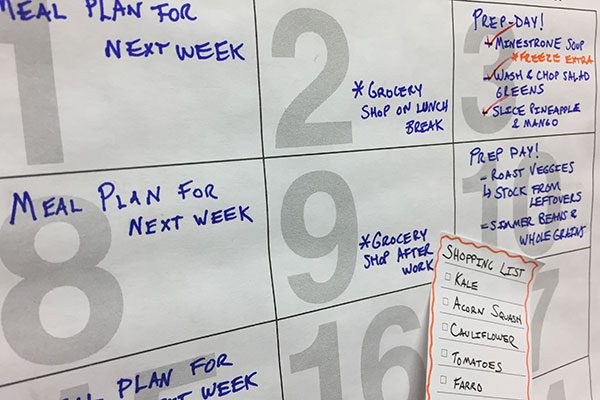 MEAL PLAN FOR
NEXT WEEK
1
2
*GROCERY
SHOP ON LUNCH
BREAK
3
PREP-DAY!
MINESTRONE SOUP
*FREEZE EXTRA
WASH & CHOP SALAD
GREENS
SLICE PINEAPPLE
& MANGO
MEAL PLAN FOR
NEXT WEEK
8
9
*GROCERY
SHOP AFTER
WORK
10
PREP DAY!
- ROAST VEGGIES
↳ STOCK FROM
LEFTOVERS
- SIMMER BEANS &
WHOLE GRAINS
MEAL PLAN FOR
NEXT WEEK
16
SHOPPING LIST
KALE
ACORN SQUASH
CAULIFLOWER
TOMATOES
FARRO